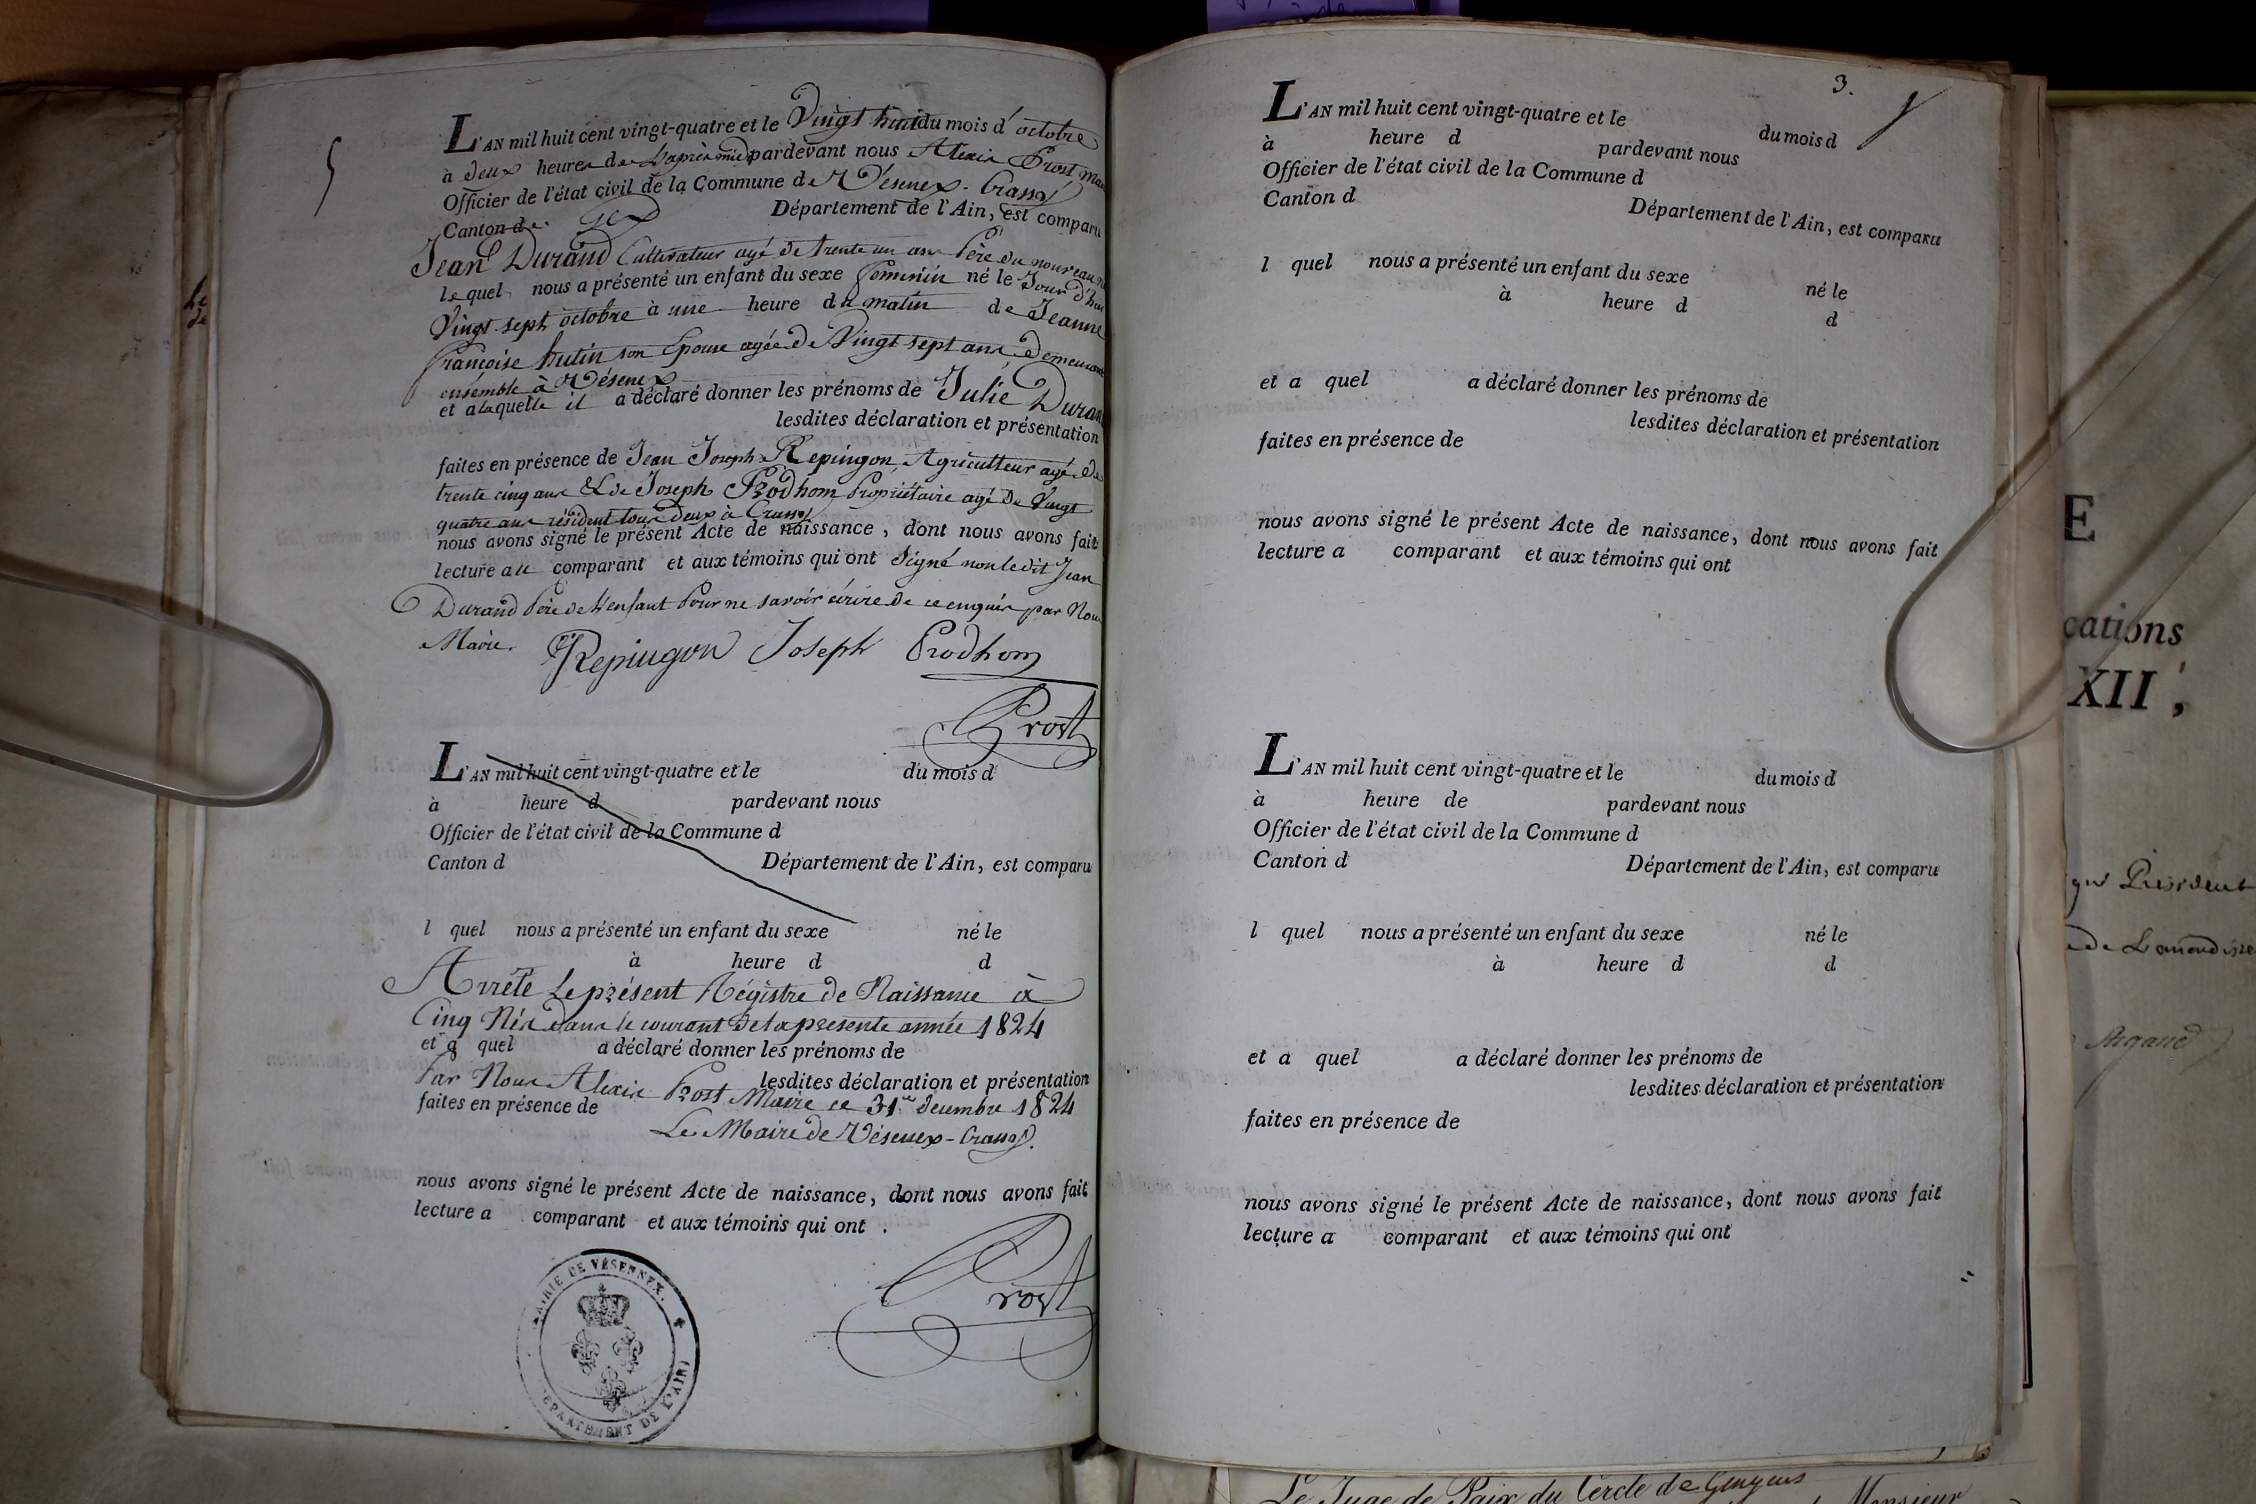 5
L'AN mil huit cent vingt-quatre et le Vingt huit du mois d'octobre
à deux heures de L'après midi pardevant nous Alexis Prost Mai
Officier de l'état civil de la Commune de Vésenex-Crassy
Canton de Gex Département de l'Ain, est comparu
Jean Durand Cultivateur agé de trente un ans Père du nouveau né
lequel nous a présenté un enfant du sexe féminin né le Jour d'hier
Vingt-sept octobre à une heure du matin de Jeanne
françoise hutin son Epouse agée de Vingt sept ans, demeurant
ensemble à Vésenex
et a laquelle il a déclaré donner les prénoms de Julie Duran
lesdites déclaration et présentation
faites en présence de Jean Joseph Repingon, Agriculteur agé de
trente cinq ans & de Joseph Prodhom Propriétaire agé de Vingt
quatre ans résident tous deux à Crassy
nous avons signé le présent Acte de naissance, dont nous avons fait
lecture au comparant et aux témoins qui ont signé non ledit Jean
Durand Père de l'enfant Pour ne savoir écrire de ce enquis par Nous
Maire.
Repingon Joseph Prodhom
Prost
L'AN mil huit cent vingt-quatre et le du mois d
à heure d pardevant nous
Officier de l'état civil de la Commune d
Canton d Département de l'Ain, est comparu
l quel nous a présenté un enfant du sexe né le
à heure d d
Arrêté Le présent Régistre de Naissance à
Cinq Nés dans le courant de la presente année 1824
et a quel a déclaré donner les prénoms de
Par Nous Alexis Prost Maire ce 31 decembre 1824
lesdites déclaration et présentation
faites en présence de
Le Maire de Vésenex-Crassy.
nous avons signé le présent Acte de naissance, dont nous avons fait
lecture a comparant et aux témoins qui ont .
Prost
MAIRIE DE VÉSENNEX.
DÉPARTEMENT DE L'AIN
3.
L'AN mil huit cent vingt-quatre et le du mois d
à heure d pardevant nous
Officier de l'état civil de la Commune d
Canton d Département de l'Ain, est comparu
l quel nous a présenté un enfant du sexe né le
à heure d d
et a quel a déclaré donner les prénoms de
lesdites déclaration et présentation
faites en présence de
nous avons signé le présent Acte de naissance, dont nous avons fait
lecture a comparant et aux témoins qui ont
L'AN mil huit cent vingt-quatre et le du mois d
à heure de pardevant nous
Officier de l'état civil de la Commune d
Canton d Département de l'Ain, est comparu
l quel nous a présenté un enfant du sexe né le
à heure d d
et a quel a déclaré donner les prénoms de
lesdites déclaration et présentation
faites en présence de
nous avons signé le présent Acte de naissance, dont nous avons fait
lecture a comparant et aux témoins qui ont
E
cations
XII,
Le Juge de Paix du Cercle de Gingins
Monsieur